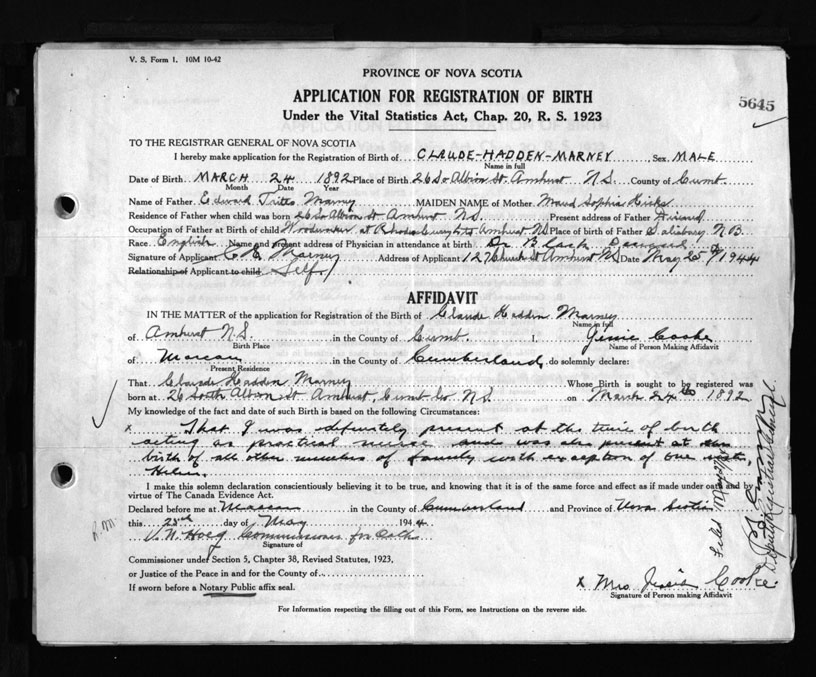 V. S. Form 1. 10M 10-42
PROVINCE OF NOVA SCOTIA
APPLICATION FOR REGISTRATION OF BIRTH
5645
Under the Vital Statistics Act, Chap. 20, R. S. 1923
TO THE REGISTRAR GENERAL OF NOVA SCOTIA
I hereby make application for the Registration of Birth of CLAUDE-HADDEN-MARNEY Sex MALE
Name in full
Date of Birth MARCH 24 1892 Place of Birth 26 So Albion St. Amherst N S. County of Cumt.
Month Date Year
Name of Father Edward Tritts Marney MAIDEN NAME of Mother Maud Sophia Hicks
Residence of Father when child was born 26 So Albion St Amherst NS. Present address of Father
Occupation of Father at Birth of child Woodworker at Rhodes Curry Amherst NS Place of birth of Father Salisbury N B.
Race English Name and present address of Physician in attendance at birth Dr Black
Signature of Applicant C H Marney Address of Applicant 127 Church St Amherst NS Date May 25 1944
Relationship of Applicant to child Self
AFFIDAVIT
IN THE MATTER of the application for Registration of the Birth of Claude Hadden Marney
Name in full
of Amherst N.S. in the County of Cumt. I, Cooke
Birth Place Name of Person Making Affidavit
of Maccan in the County of Cumberland, do solemnly declare:
Present Residence
That Claude Hadden Marney Whose Birth is sought to be registered was
born at 26 South Albion St Amherst, Cumt Co N.S. on March 24th 1892
My knowledge of the fact and date of such Birth is based on the following Circumstances:
x That I was definitely present at the time of birth
acting as practical nurse and was also present at the
birth of all other members of family with exception of one
Helen.
I make this solemn declaration conscientiously believing it to be true, and knowing that it is of the same force and effect as if made under oath and by
virtue of The Canada Evidence Act.
Declared before me at Maccan in the County of Cumberland and Province of Nova Scotia
this 25th day of May 1944.
V. N. Hoeg Commissioner for Oaths
Signature of
Commissioner under Section 5, Chapter 38, Revised Statutes, 1923,
or Justice of the Peace in and for the County of
If sworn before a Notary Public affix seal.
x Mrs Jessie Cooke.
Signature of Person making Affidavit
For Information respecting the filling out of this Form, see Instructions on the reverse side.